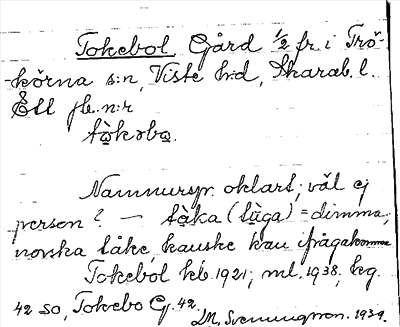 Tokebol Gård 1/2 fr. i Trö-
körna s:n, Viste h:d, Skarab. l.
Ell fle. n:r
tåkəbo.
Namnurspr. oklart; väl ej
person? — tåka (tùga) = dimma,
norska tåke, kanske kan ifrågakomma
Tokebol kb. 1921; ml. 1938, kg.
42 SO, Tokebo G. 42.
M. Svenungson. 1939.